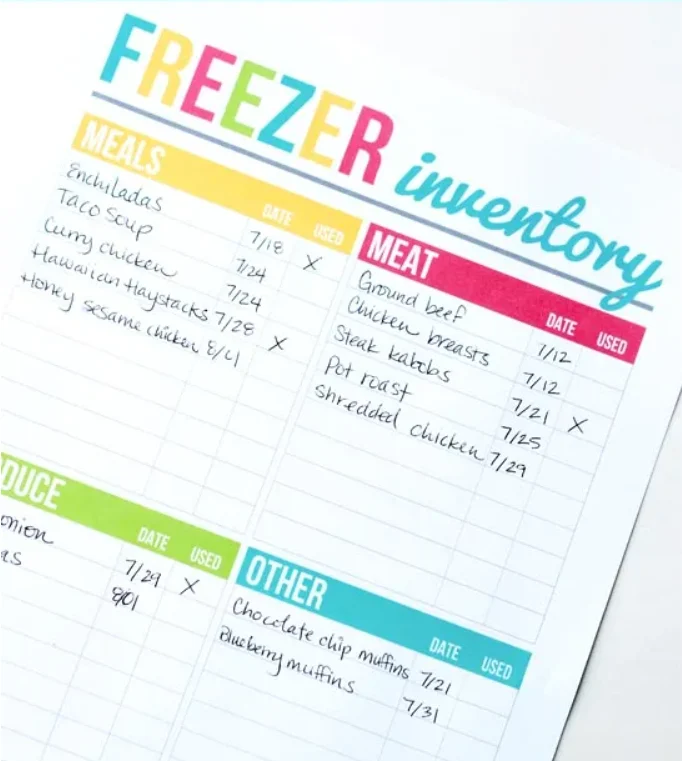 FREEZER inventory
MEALS DATE USED
Enchiladas 7/18 X
Taco Soup 7/24
Curry chicken 7/24
Hawaiian Haystacks 7/28 X
Honey sesame chicken 8/01
MEAT DATE USED
Ground beef 7/12
Chicken breasts 7/12
Steak kabobs 7/21 X
Pot roast 7/25
shredded chicken 7/29
DUCE DATE USED
onion 7/29 X
as 8/01
OTHER DATE USED
Chocolate chip muffins 7/21
Blueberry muffins 7/31